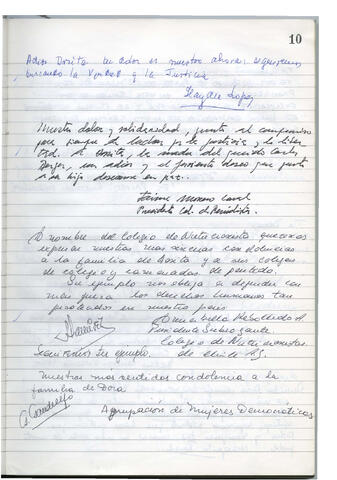 10
Adios Dorita un adios es nuestro ahora: seguiremos
buscando la Verdad y la Justicia
Nuestro dolor y solidaridad, junto al compromiso
para siempre de luchar por la justicia y la liber
tad. A Dorita, la madre del querido Carlos
Berger, un adios y el ferviente deseo que junto
a su hijo descanse en paz.
Jaime Moreno
Presidente Col. de Periodistas.
A nombre del Colegio de Nutricionistas queremos
expresar nuestras mas sinceras condolencias
a la familia de Dorita y a sus colegas
de colegio y camaradas de partido.
Su ejemplo nos obliga a defender con
mas fuerza los derechos humanos tan
pisoteados en nuestro pais
Rebolledo
Presidente Subrogante
Colegio de Nutricionistas
de Chile A.G.
Seguiremos Su ejemplo.
Nuestras mas sentidas condolencia a la
familia de Dora
Agrupación de Mujeres Democráticas